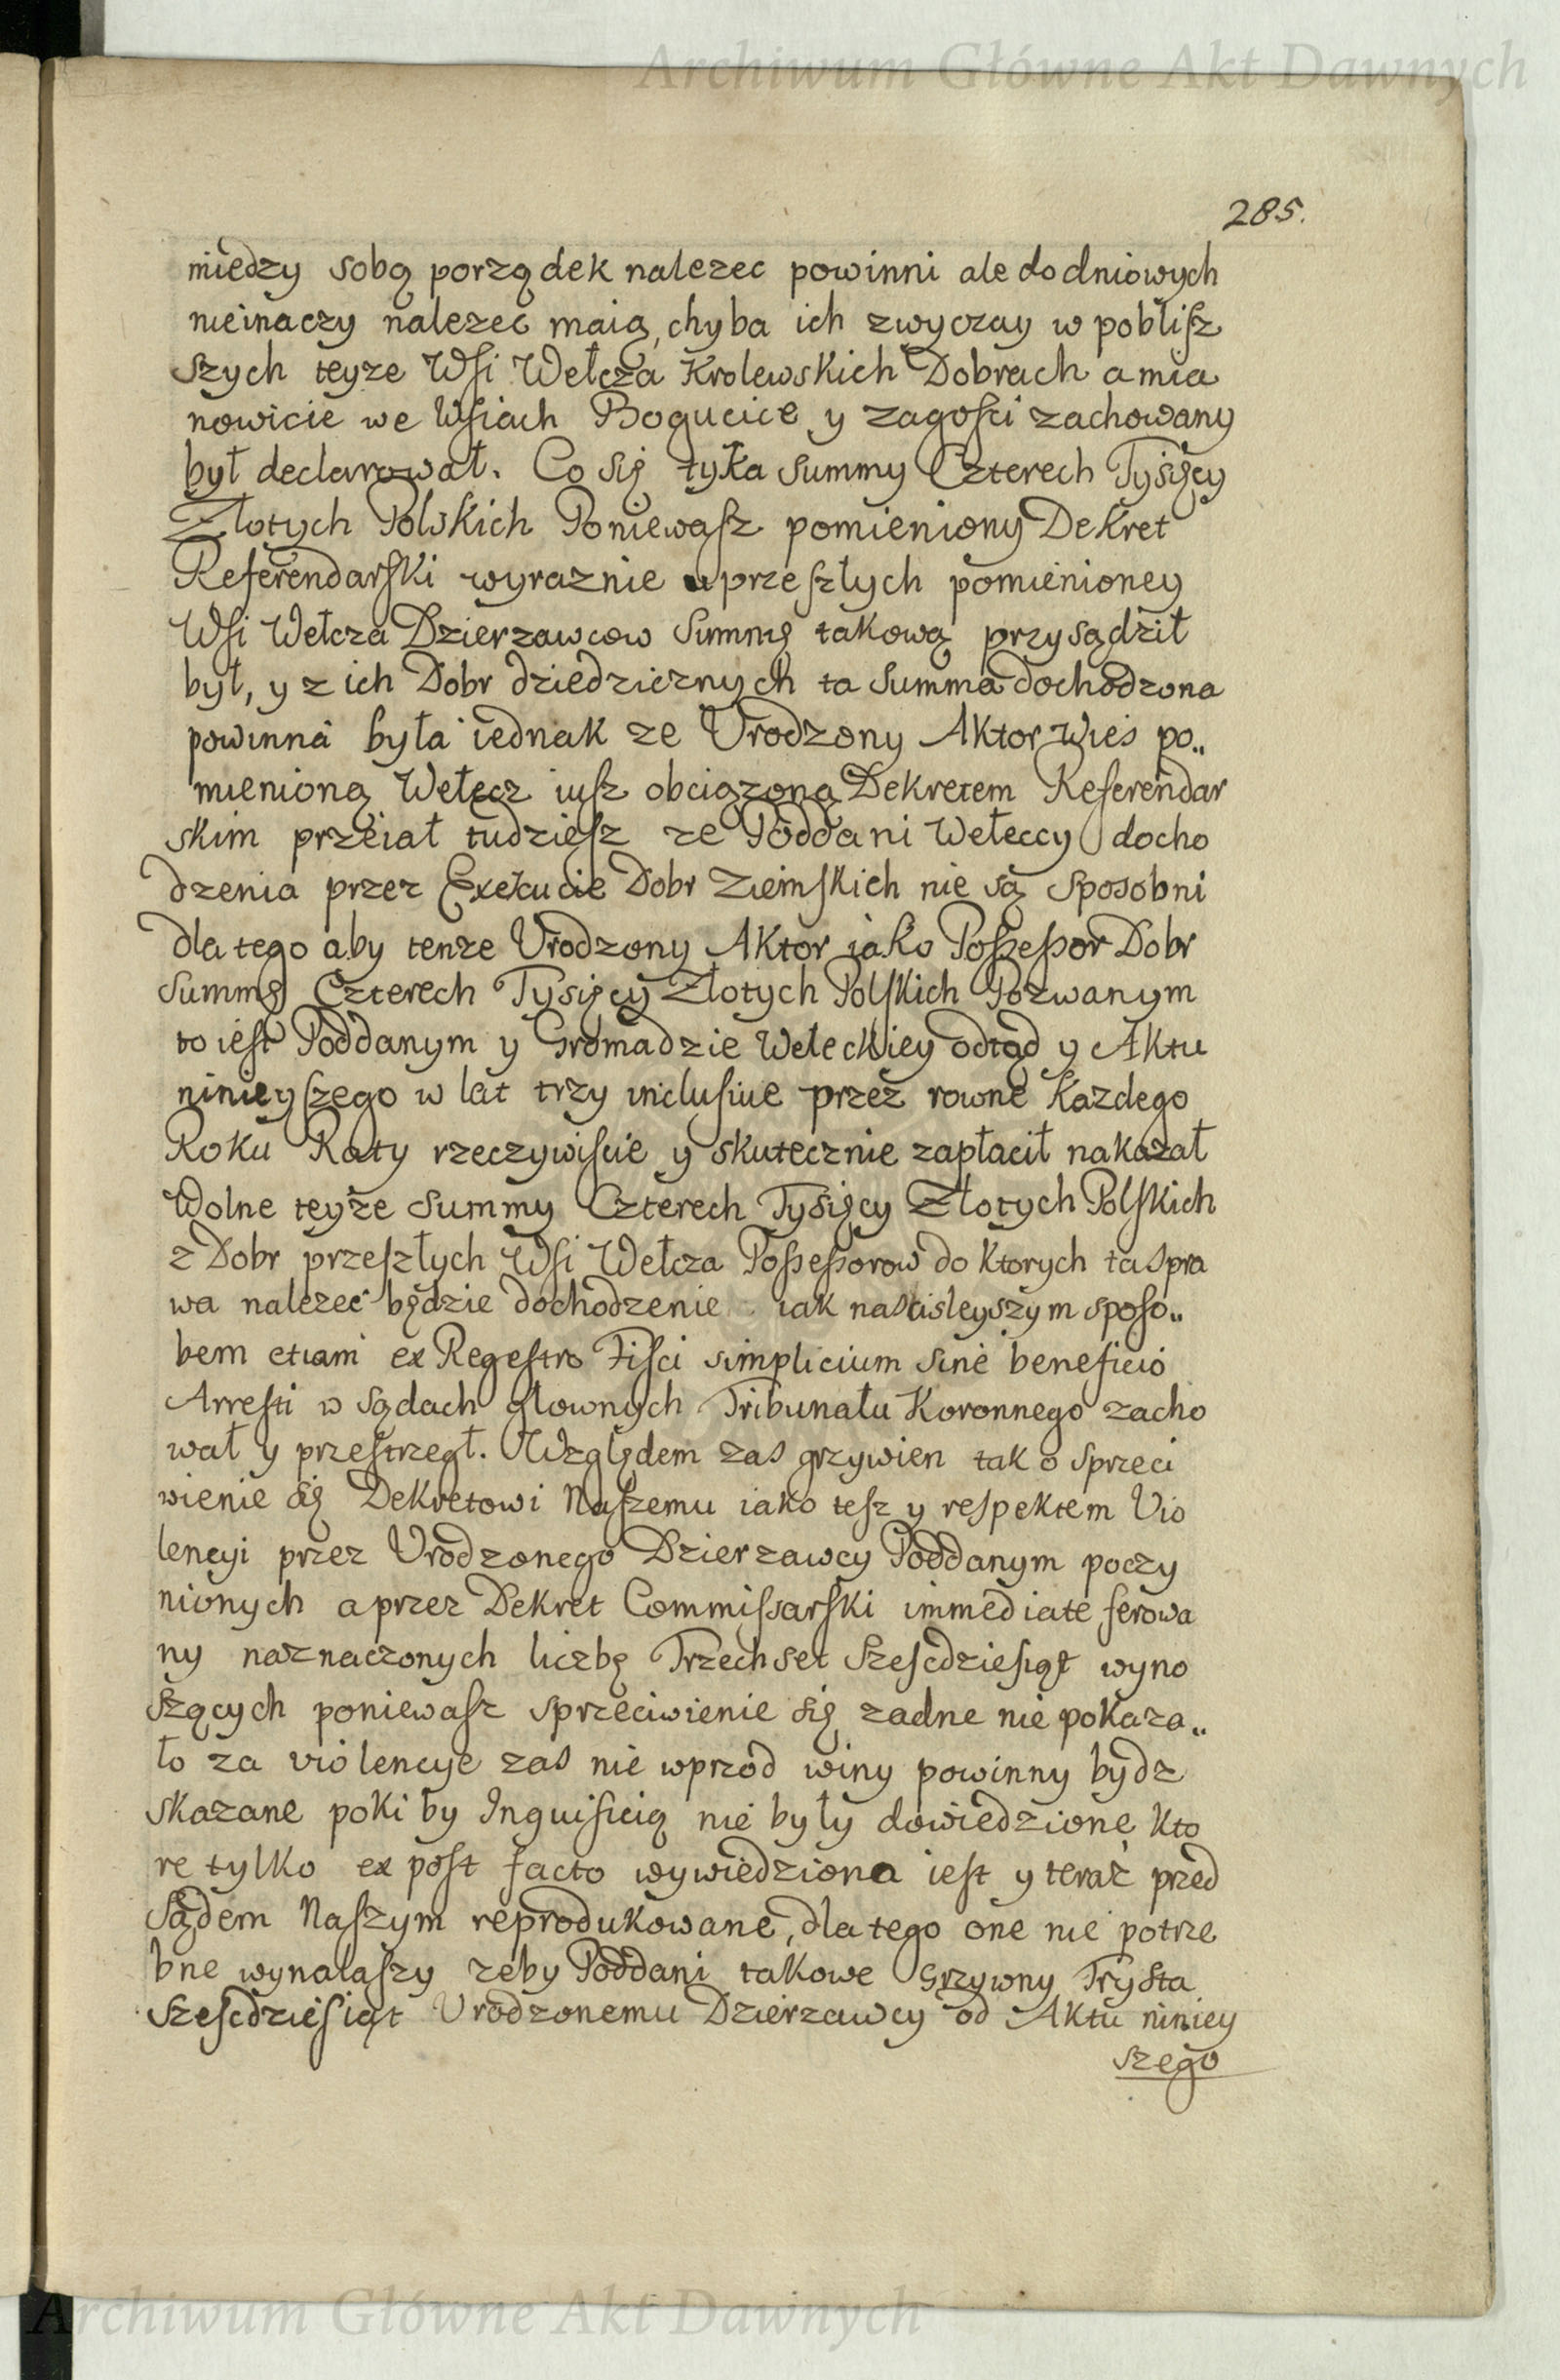 Archiwum Główne Akt Dawnych
285.
miedzy sobą porządek nalezec powinni ale do dniowych
nieinaczy nalezec maią, chyba ich zwyczay w poblisz
szych teyze Wsi Wełcza Krolewskich Dobrach a mia
nowicie we Wsiach Bogucice y Zagosci zachowany
był declarował. Co się tyka Summy Czterech Tysięcy
Złotych Polskich Poniewasz pomieniony Dekret
Referendarski wyraznie u przeszłych pomienioney
Wsi Wełcza Dzierzawcow Summę takową przysądził
był, y z ich Dobr dziedzicznych ta Summa dochodzona
powinna była iednak ze Urodzony Aktor Wies po„
mienioną Wełecz iusz obciązoną Dekretem Referendar
skim przeiał tudziesz ze Poddani Wełeccy docho
dzenia przez Exekucie Dobr Ziemskich nie są sposobni
dla tego aby tenze Urodzony Aktor iako Possessor Dobr
Summę Czterech Tysięcy Złotych Polskich Pozwanym
to iest Poddanym y Gromadzie Weleckiey odtąd y Aktu
ninieyszego w lat trzy inclusive przez rowne Kazdego
Roku Raty rzeczywiscie y skutecznie zapłacił nakazał
Wolne teyze Summy Czterech Tysięcy Złotych Polskich
z Dobr przeszłych Wsi Wełcza Possessorow do ktorych ta spra
wa nalezec będzie dochodzenie iak nascisleyszym sposo„
bem etiam ex Regestro Fisci simplicium sine beneficio
Arresti w Sądach głownych Tribunału Koronnego zacho
wał y przestrzegł. Względem zas grzywien tak o sprzeci
wienie się Dekretowi Naszemu iako tesz y respektem Vio
lencyi przez Urodzonego Dzierzawcy Poddanym poczy
nionych a przez Dekret Commissarski immediate ferowa
ny naznaczonych liczbę Trzechset Szescdziesiąt wyno
szących poniewasz sprzeciwienie się zadne nie pokaza„
ło za violencye zas nie wprzod winy powinny bydz
skazane poki by Inquisicią nie były dowiedzione kto
re tylko ex post facto wywiedziona iest y teraz przed
Sądem Naszym reprodukowane, dla tego one nie potrze
bne wynalaszy zeby Poddani takowe Grzywny Trysta
Szescdziesiąt Urodzonemu Dzierzawcy od Aktu niniey
szego
Archiwum Główne Akt Dawnych